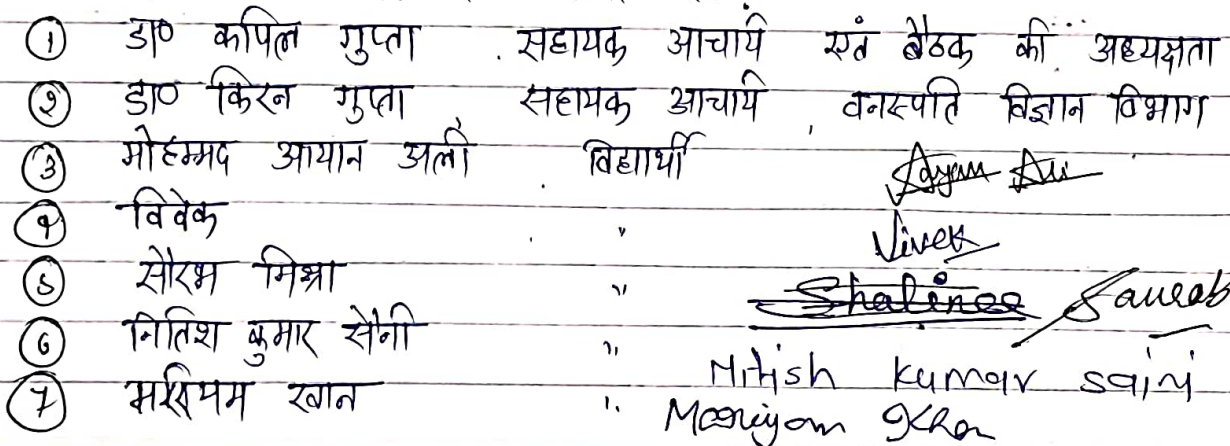 ① डा० कपिल गुप्ता . सहायक आचार्य एवं बैठक की अध्यक्षता
② डा० किरन गुप्ता सहायक आचार्य , वनस्पति विज्ञान विभाग
③ मोहम्मद आयान अली विद्यार्थी Ayan Ali
④ विवेक " Vivek
⑤ सौरभ मिश्रा " Shalinee Saurab
⑥ नितिश कुमार सैनी " Nitish Kumar saini
⑦ मरियम खान " Mariyam Khan